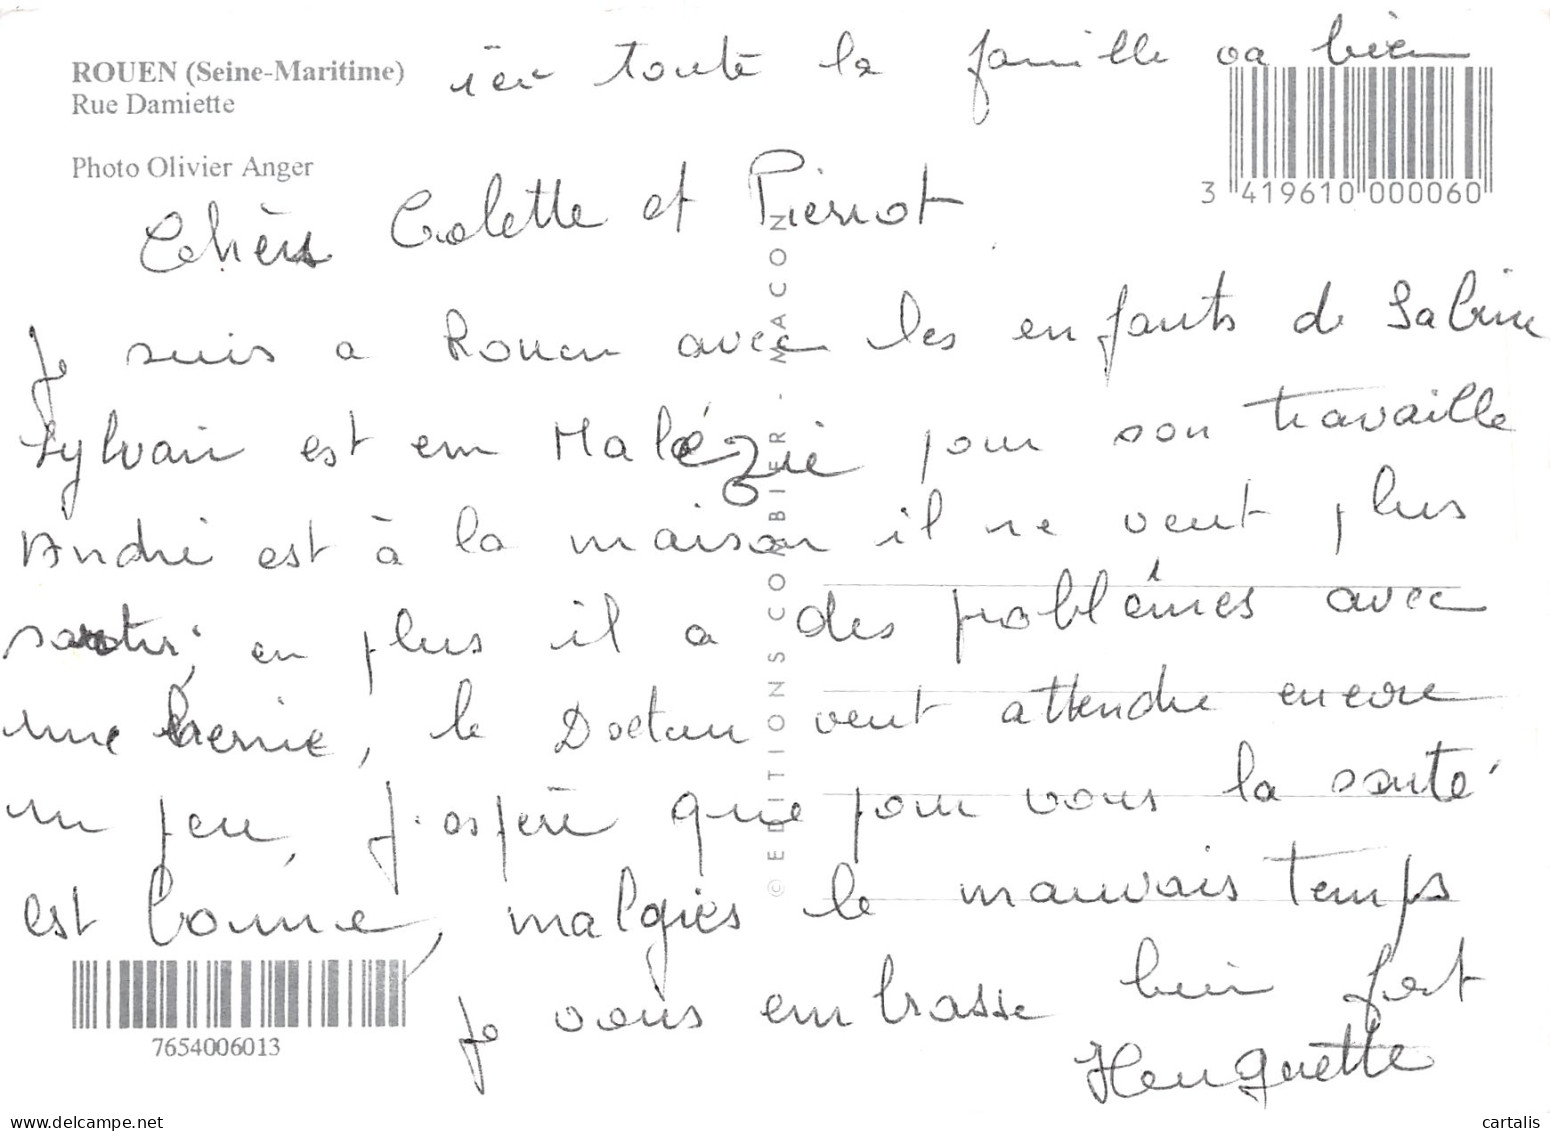 ROUEN (Seine-Maritime)
Rue Damiette
Photo Olivier Anger
ici toute la famille va bien
3 419610 000060
Cehèrs Colette et Pierrot
Je suis a Rouen avec les enfants de Sabine
Sylvain est em Malézie pour son travaille
André est à la maison il ne veut plus
sortir, en plus il a des problêmes avec
une hernie, le Docteur veut attendre encore
un peu, j'espère que pour vous la santé
est bonne, malgres le mauvais temps
Je vous embrasse bien fort
Huguette
© EDITIONS COMBIER - MACON
7654006013
delcampe.net
cartalis